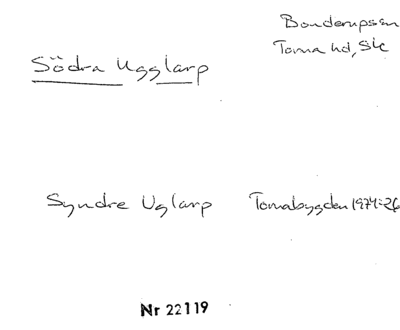 Bonderupssn
Torna hd, Sk
Södra Ugglarp
Syndre Uglarp Tornabygden 1974:26
Nr 22119